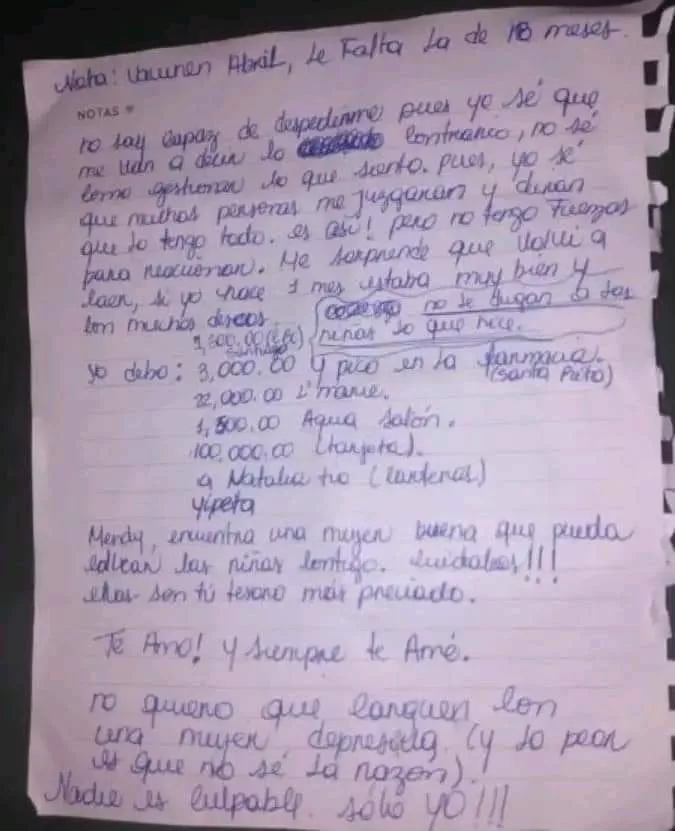 Nota: Vacunen Abril, Le Falta La de 18 meses.
NOTAS
no soy capaz de despedirme pues yo sé que
me van a decir lo contrario, no sé
como gestionar lo que siento. pues, yo sé
que muchas personas me juzgaran y diran
que lo tengo todo. es asi! pero no tengo Fuerzas
para reaccionar. Me sorprende que volvi a
caer, si yo hace 1 mes estaba muy bien y
con muchos deseos no le digan a las
niñas lo que hice.
yo debo: 3,000.00 y pico en la farmacia.
(Santa Rita)
22,000.00
1,500.00 Agua Salón.
100,000.00 (tarjeta).
a Natalia tuo (carteras)
yipeta
Mendy, encuentra una mujer buena que pueda
educar las niñas contigo. cuidalas!!!
ellas son tú tesoro más preciado.
Te Amo! y siempre te Amé.
no quiero que carguen con
una mujer depresiva (y lo peor
es que no sé la razón).
Nadie es culpable. sólo yo!!!